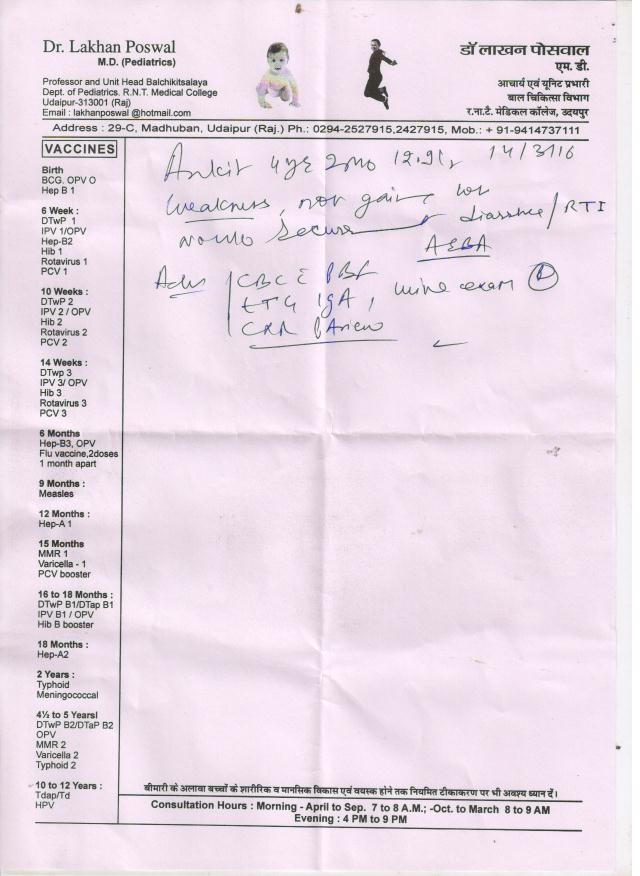 Dr. Lakhan Poswal
M.D. (Pediatrics)
Professor and Unit Head Balchikitsalaya
Dept. of Pediatrics. R.N.T. Medical College
Udaipur-313001 (Raj)
Email : lakhanposwal @hotmail.com
डॉ लाखन पोसवाल
एम. डी.
आचार्य एवं यूनिट प्रभारी
बाल चिकित्सा विभाग
र.ना.टै. मेडिकल कॉलेज, उदयपुर
Address : 29-C, Madhuban, Udaipur (Raj.) Ph.: 0294-2527915,2427915, Mob.: + 91-9414737111
VACCINES
Birth
BCG. OPV O
Hep B 1
6 Week :
DTwP 1
IPV 1/OPV
Hep-B2
Hib 1
Rotavirus 1
PCV 1
10 Weeks :
DTwP 2
IPV 2 / OPV
Hib 2
Rotavirus 2
PCV 2
14 Weeks :
DTwp 3
IPV 3/ OPV
Hib 3
Rotavirus 3
PCV 3
6 Months
Hep-B3, OPV
Flu vaccine,2doses
1 month apart
9 Months :
Measles
12 Months :
Hep-A 1
15 Months
MMR 1
Varicella - 1
PCV booster
16 to 18 Months :
DTwP B1/DTap B1
IPV B1 / OPV
Hib B booster
18 Months :
Hep-A2
2 Years :
Typhoid
Meningococcal
4½ to 5 Yearsl
DTwP B2/DTaP B2
OPV
MMR 2
Varicella 2
Typhoid 2
10 to 12 Years :
Tdap/Td
HPV
Ankit 4 yrs 2mo 14/3/16
Weakness, not gaining
RTI
Adv CBC PBF
tTG IgA, urine exam
बीमारी के अलावा बच्चों के शारीरिक व मानसिक विकास एवं वयस्क होने तक नियमित टीकाकरण पर भी अवश्य ध्यान दें।
Consultation Hours : Morning - April to Sep. 7 to 8 A.M.; -Oct. to March 8 to 9 AM
Evening : 4 PM to 9 PM